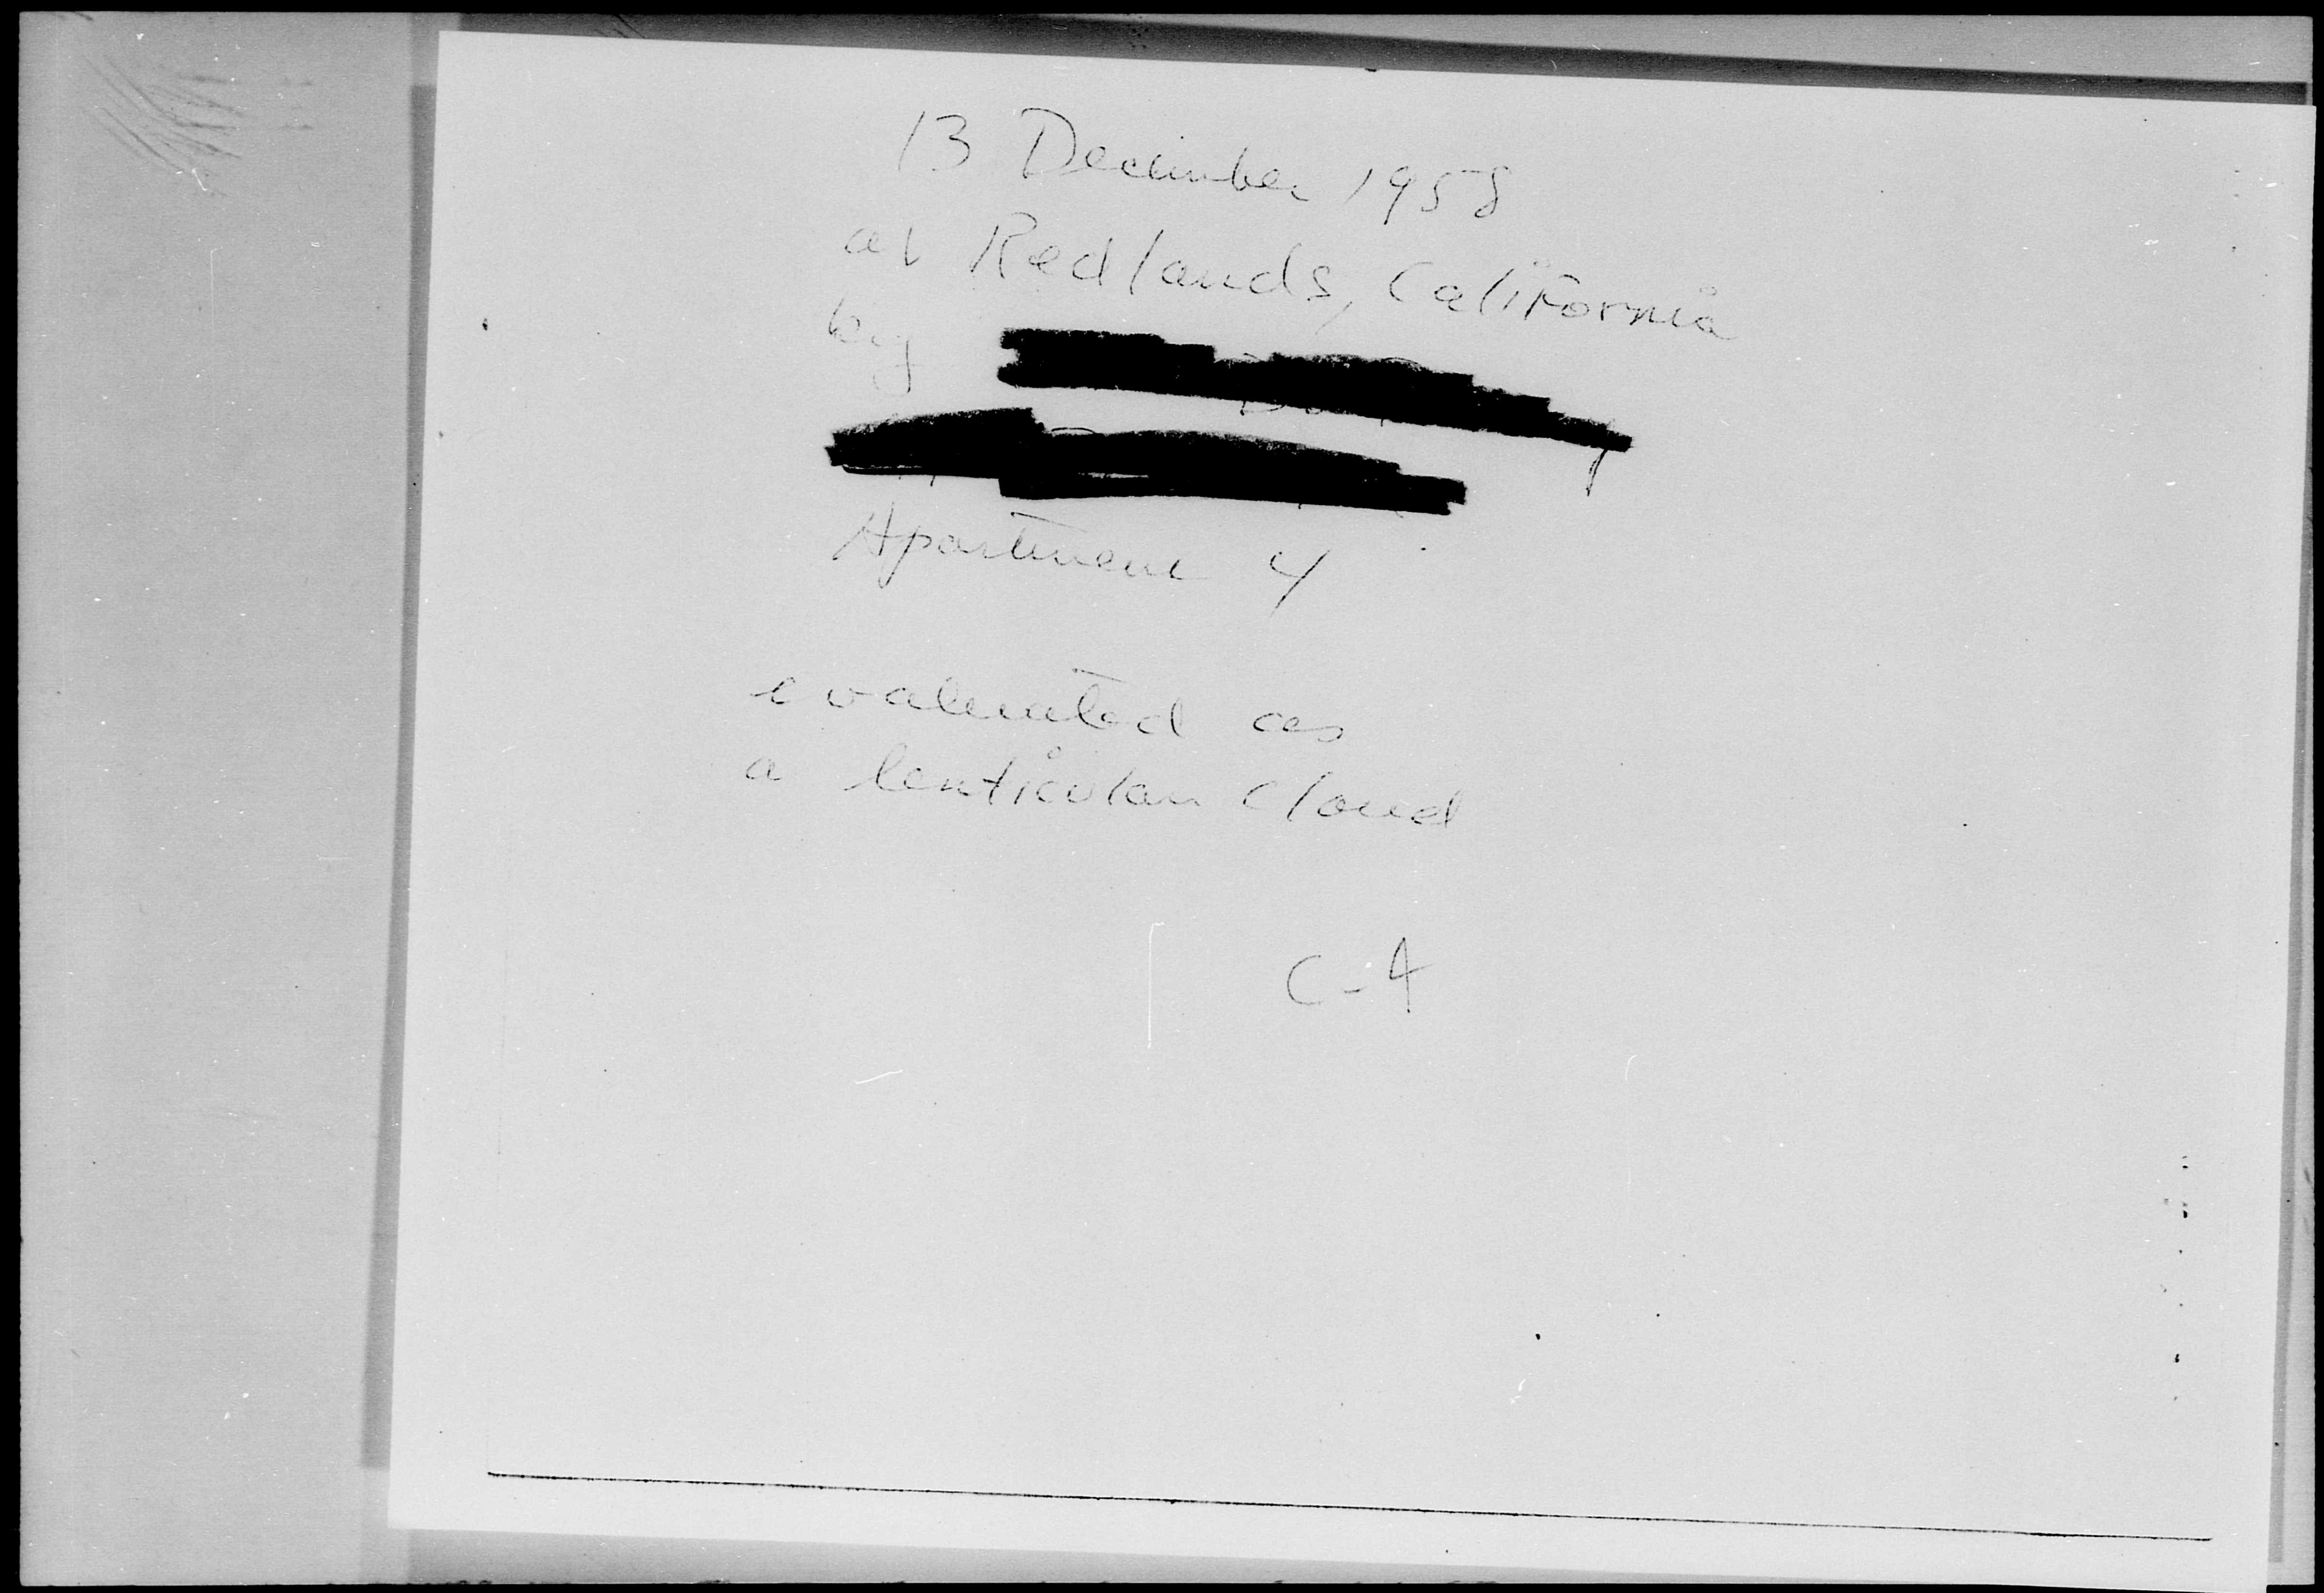 13 December 1958
at Redlands, California
by
Apartment 4
evaluated as
a lenticular cloud
C-4